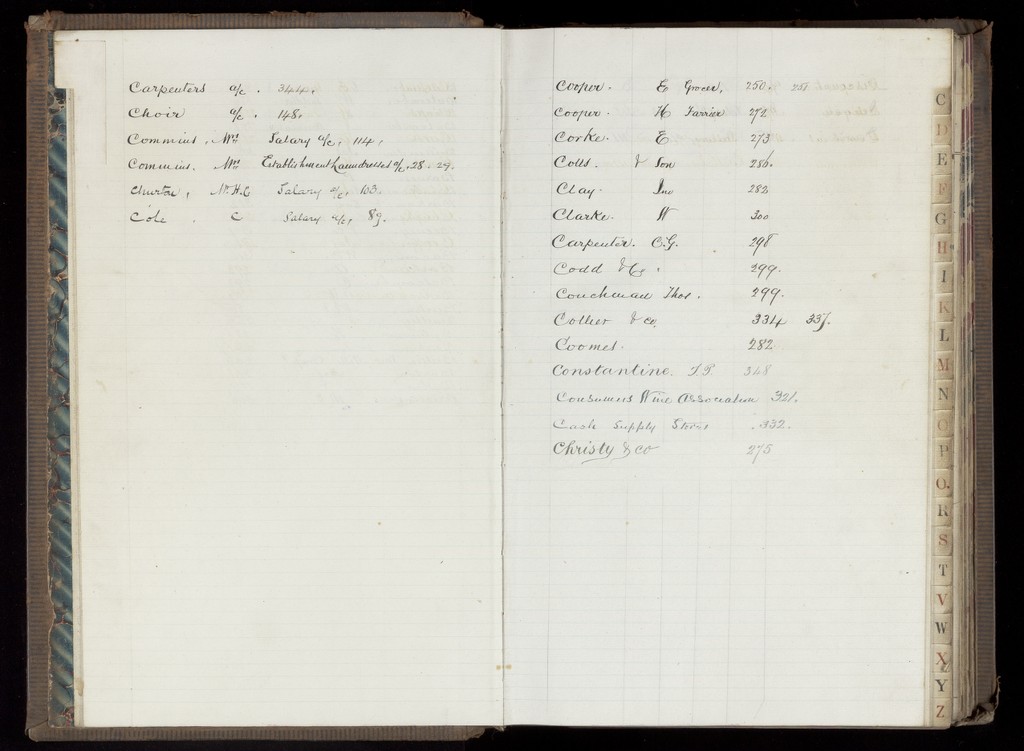 Carpenters a/c . 344.
Choir a/c . 148.
Commins , Mrs Salary a/c , 114,
Commins. Mrs Establishment Laundresses a/c, 28 . 29.
Churton , Mr H.C Salary a/c, 103.
Cole . C Salary a/c, 89.
Cooper . E Grocer, 250. 251
Cooper . H Farrier 272
Corke . E 273
Colls . & Son 286.
Clay . 283
Clarke . W 300
Carpenter . C.G. 298
Codd & Co . 299.
Couchman Thos . 299.
Collier & co. 334 337.
Coomes . 282
Constantine. J.P. 348
Consumers Wine Association 321.
Cash Supply Stores . 332.
Christy & co 275
C
D
E
F
G
H
I
K
L
M
N
O
P
Q
R
S
T
V
W
X
Y
Z